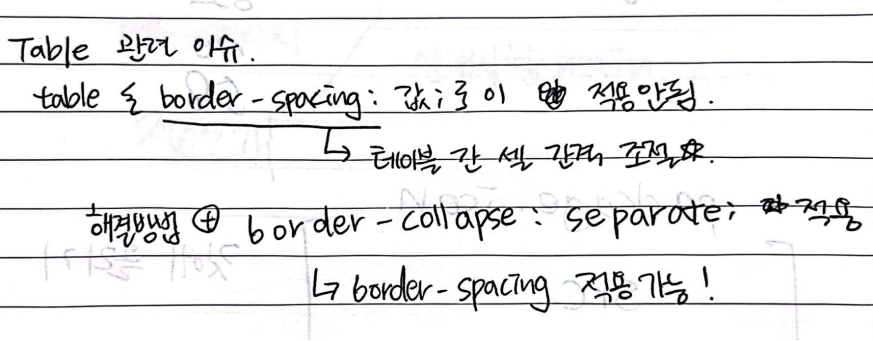 Table 관련 이슈.
table 을 border-spacing: 값; 로 이 적용안됨.
↳ 테이블 간 셀 간격 조절.
해결방법 ⊕ border-collapse : separate; 적용
↳ border-spacing 적용가능!